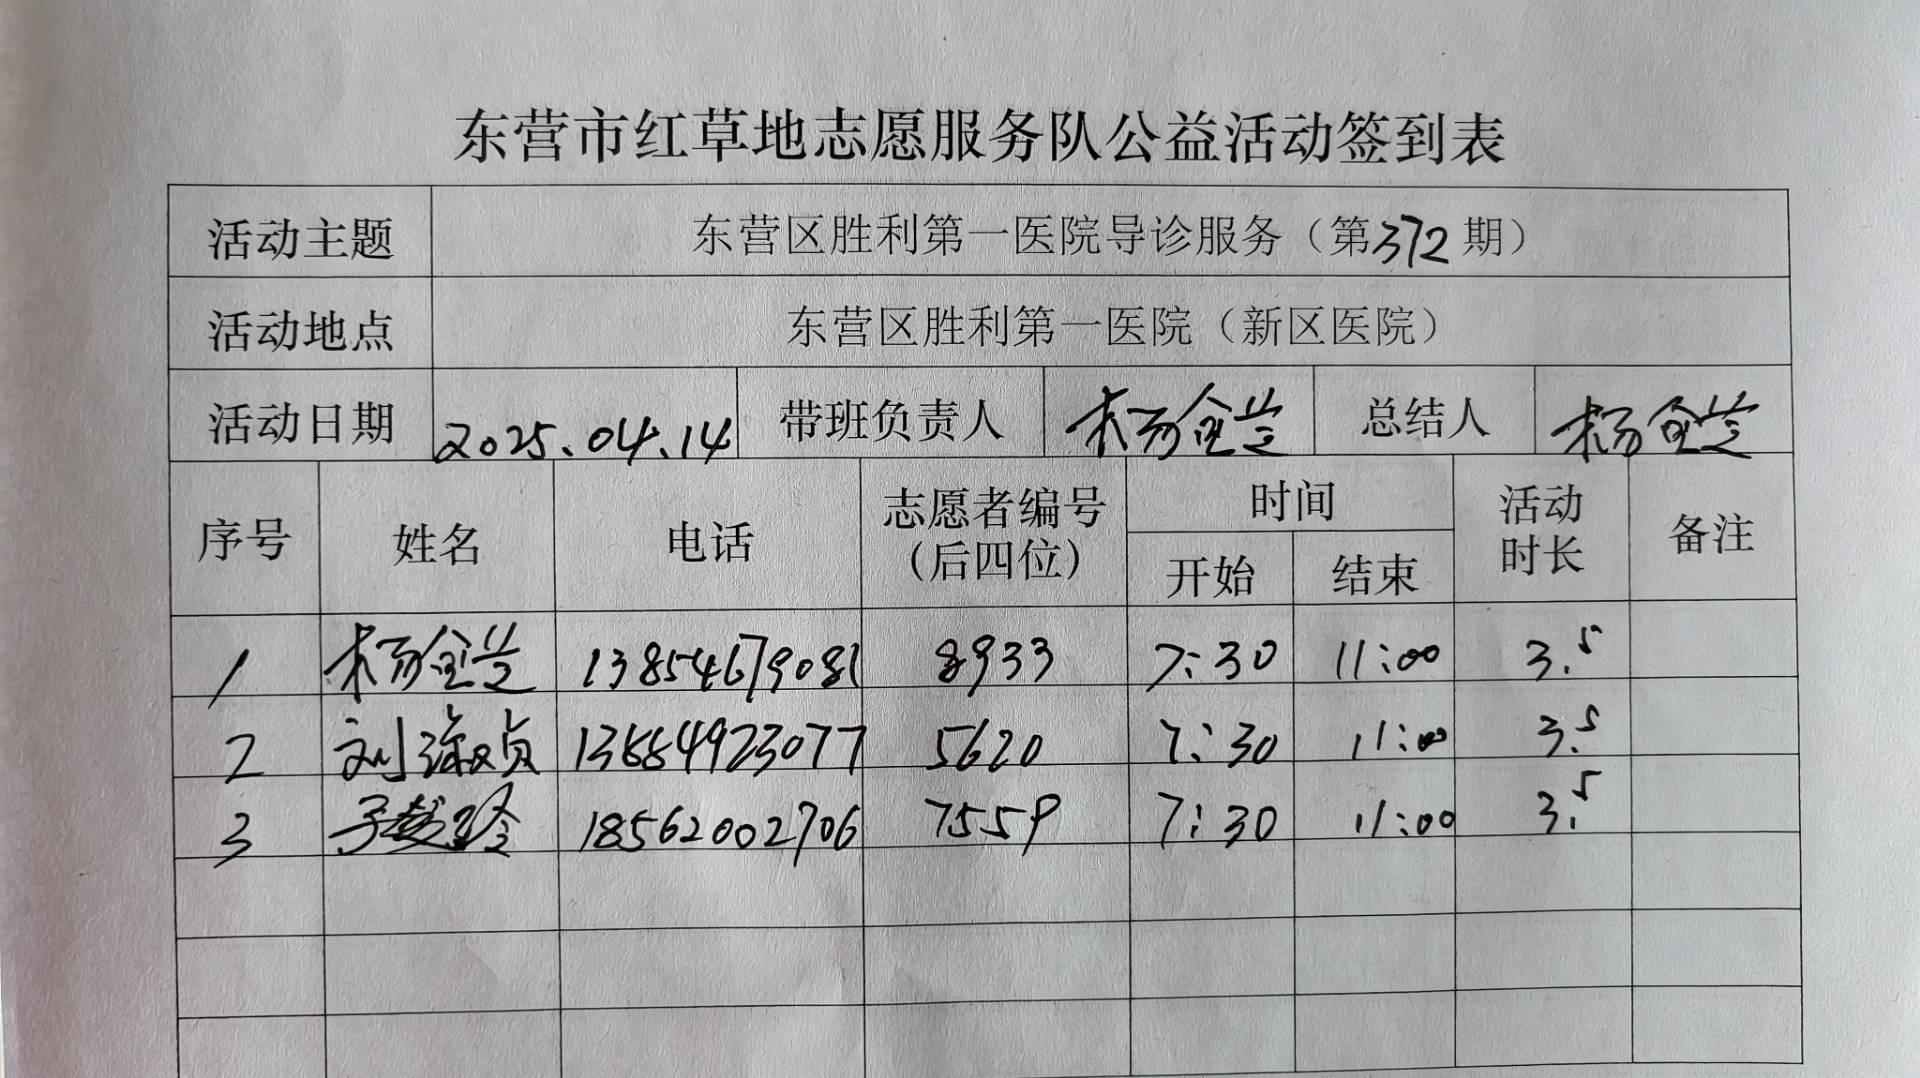 东营市红草地志愿服务队公益活动签到表
活动主题 东营区胜利第一医院导诊服务（第372期）
活动地点 东营区胜利第一医院（新区医院）
活动日期 2025.04.14 带班负责人 杨金兰 总结人 杨金兰
序号 姓名 电话 志愿者编号（后四位） 时间 开始 结束 活动时长 备注
1 杨金兰 13854679081 8933 7:30 11:00 3.5
2 刘淑贞 5620 7:30 11:00 3.5
3 18562002706 7559 7:30 11:00 3.5